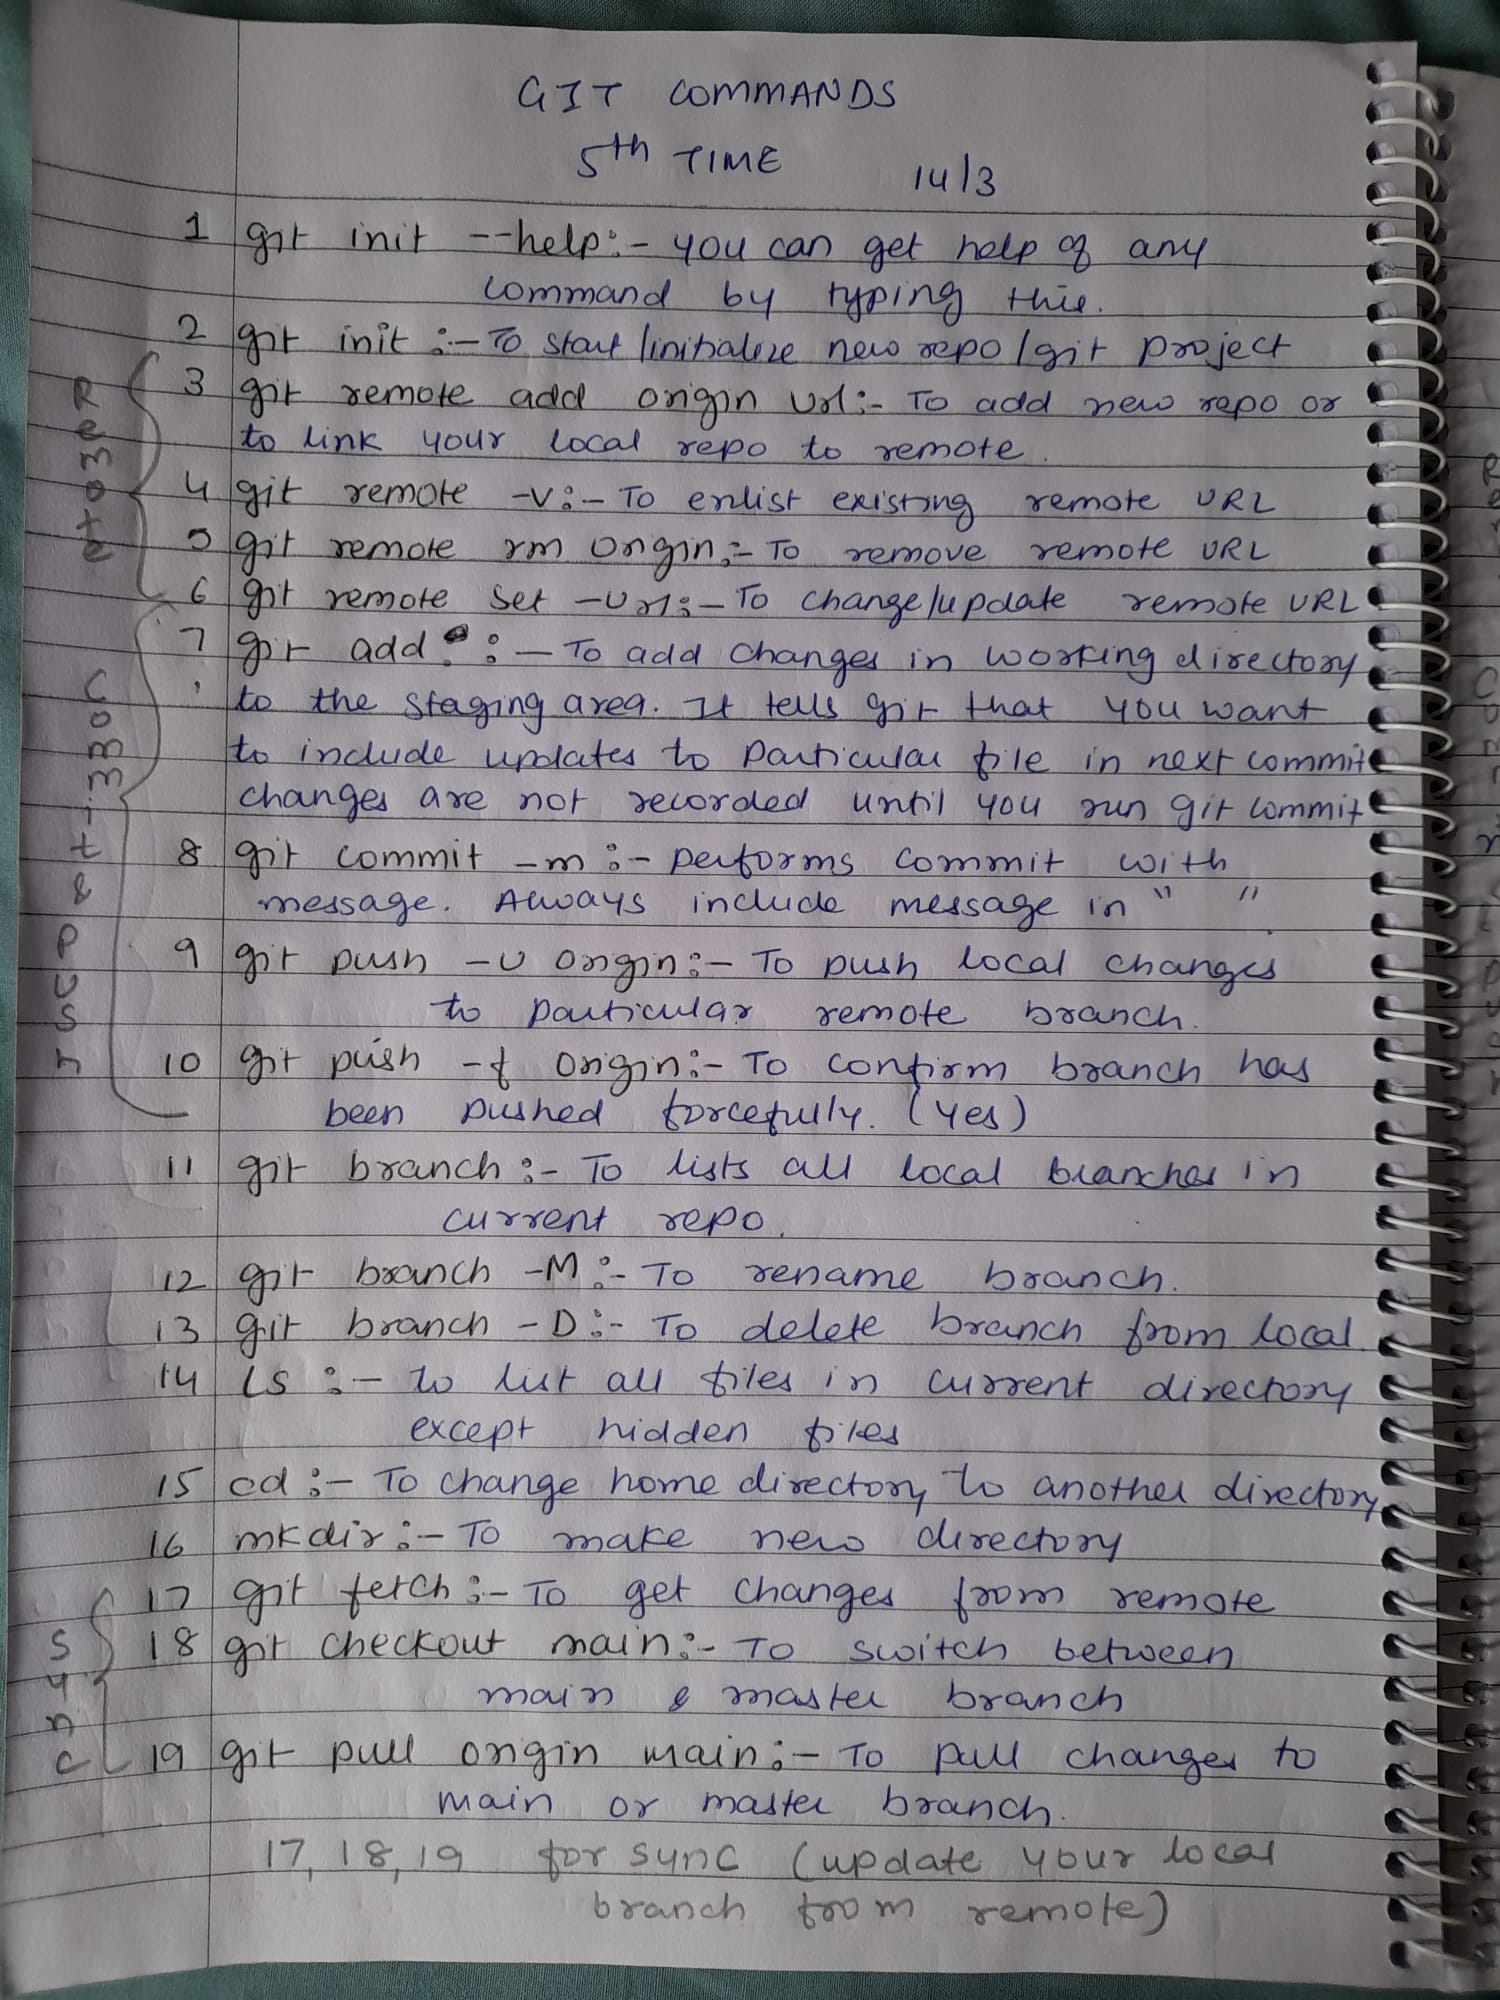 GIT COMMANDS
5th TIME 14/3
1 git init --help:- you can get help of any
command by typing this.
2 git init :- To start/initialize new repo/git project
3 git remote add origin url:- To add new repo or
to link your local repo to remote.
4 git remote -v:- To enlist existing remote URL
5 git remote rm origin:- To remove remote URL
6 git remote set -url:- To change/update remote URL
7 git add . :- To add changes in working directory
to the staging area. It tells git that you want
to include updates to particular file in next commit
changes are not recorded until you run git commit
8 git commit -m:- performs commit with
message. Always include message in " "
9 git push -u origin:- To push local changes
to particular remote branch.
10 git push -f origin:- To confirm branch has
been pushed forcefully. (yes)
11 git branch:- To lists all local branches in
current repo.
12 git branch -M:- To rename branch.
13 git branch -D:- To delete branch from local.
14 ls :- to list all files in current directory
except hidden files
15 cd :- To change home directory to another directory
16 mkdir:- To make new directory
17 git fetch:- To get changes from remote
18 git checkout main:- To switch between
main & master branch
19 git pull origin main:- To pull changes to
main or master branch.
17, 18, 19 for sync (update your local
branch from remote)
Remote
Commit & Push
Sync